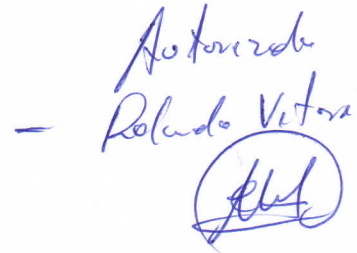 Autorizado
- Rolando Vitova